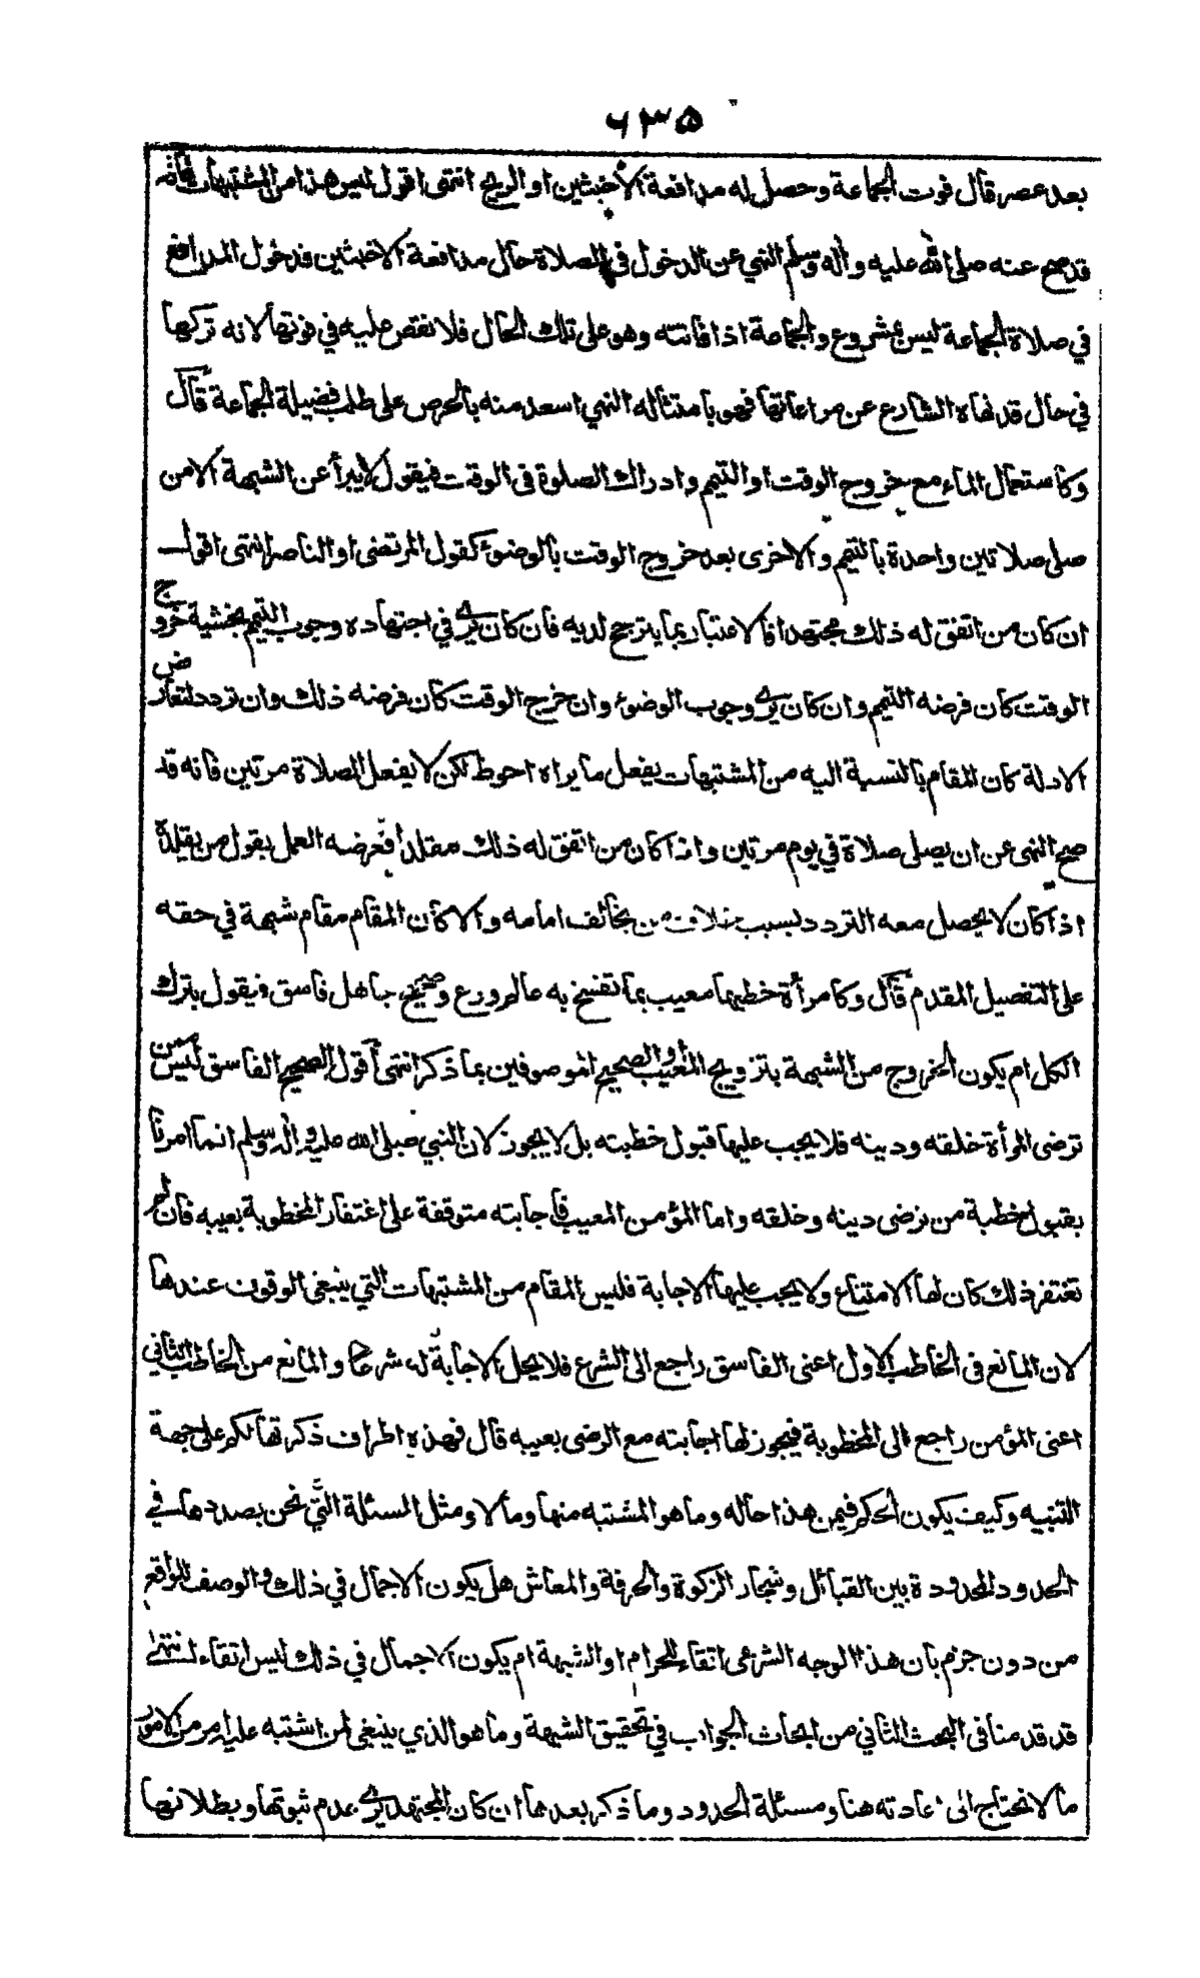 ٦٣٥
بعد عصر قال فوت الجماعة وحصل له مدافعة الأخبثين او الريح انتهى اقول ليس هذا من المشتبهات فانه
قد صح عنه صلى الله عليه واله وسلم النهي عن الدخول في الصلاة حال مدافعة الاخبثين فدخول المدافع
في صلاة الجماعة ليس بمشروع والجماعة اذا فاتته وهو على تلك الحال فلا نقص عليه في فوتها لانه تركها
في حال قد نهاه الشارع عن مراعاتها فهو بامتثاله النهي اسعد منه بالحرص على طلب فضيلة الجماعة قال
وكاستعمال الماء مع خروج الوقت او التيمم وادراك الصلوة في الوقت فيقول لا يبرأ عن الشبهة الا من
صلى صلاتين واحدة بالتيمم والاخرى بعد خروج الوقت بالوضوء كقول المرتضى او الناصر انتهى اقول
ان كان من اتفق له ذلك مجتهدا فالاعتبار بما يترجح لديه فان كان يرى في اجتهاده وجوب التيمم بخشية خروج
الوقت كان فرضه التيمم وان كان يرى وجوب الوضوء وان خرج الوقت كان فرضه ذلك وان تردد لتعارض
الادلة كان المقام بالنسبة اليه من المشتبهات يفعل ما يراه احوط لكن لا يفعل الصلاة مرتين فانه قد
صح النهى عن ان يصلى صلاة في يوم مرتين واذا كان من اتفق له ذلك مقلدا ففرضه العمل بقول من يقلده
اذا كان لا يحصل معه التردد بسبب خلاف من يخالف امامه والا كان المقام مقام شبهة في حقه
على التفصيل المقدم قال وكامرأة خطبها معيب بما تفسخ به عالم ورع وصحيح جاهل فاسق فيقول بترك
الكل ام يكون الخروج من الشبهة بتزويج المعيب او الصحيح الموصوفين بما ذكر انتهى أقول الصحيح الفاسق ليس ممن
ترضى المرأة خلقه ودينه فلا يجب عليها قبول خطبته بل لا يجوز لان النبي صلى الله عليه واله وسلم انما امرنا
بقبول خطبة من نرضى دينه وخلقه واما المؤمن المعيب فاجابته متوقفة على اغتفار المخطوبة بعيبه فان لم
تغتفر ذلك كان لها الامتناع ولا يجب عليها الاجابة فليس المقام من المشتبهات التي ينبغي الوقوف عندها
لان المانع في الخاطب الاول اعنى الفاسق راجع الى الشرع فلا يحل الاجابة له شرعا والمانع من الخاطب الثاني
اعنى المؤمن راجع الى المخطوبة فيجوز لها اجابته مع الرضى بعيبه قال فهذه اطراف ذكرتها لكم على جهة
التنبيه وكيف يكون الحكم فيمن هذا حاله وما هو المشتبه منها وما لا ومثل المسئلة التي نحن بصددها في
الحدود المحدودة بين القبائل وشجار الزكوة والحرفة والمعاش هل يكون الاجمال في ذلك والوصف للواقع
من دون جزم بان هذا الوجه الشرعى اتقاء للحرام او الشبهة ام يكون الاجمال في ذلك ليس اتقاء انتهى
قد قدمنا في البحث الثاني من ابحاث الجواب في تحقيق الشبهة وما هو الذي ينبغي لمن اشتبه عليه امر من الامور
ما لا نحتاج الى اعادته هنا ومسئلة الحدود وما ذكر بعدها ان كان المجتهد يرى عدم ثبوتها وبطلانها